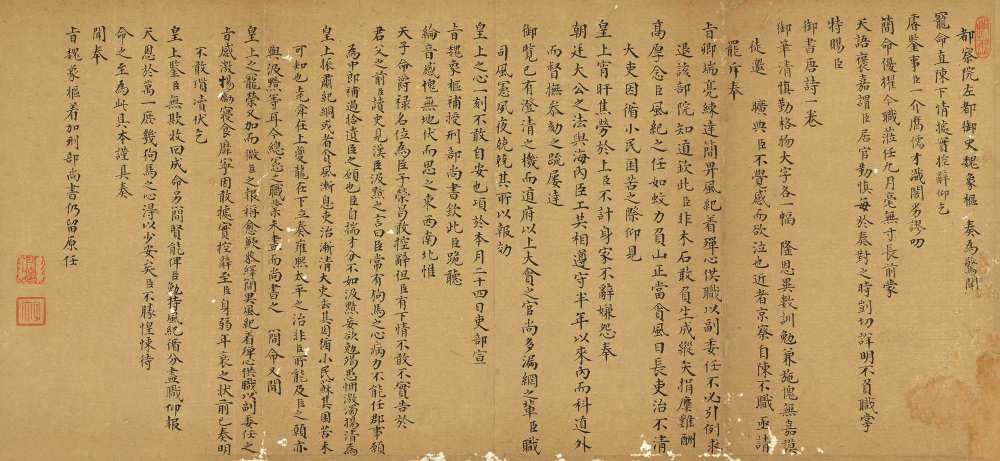 都察院左都御史魏象樞 奏為驚聞
寵命直陳下情據實控辭仰乞
睿鑒事臣一介腐儒才識闇劣謬叨
簡命優擢今職蒞任九月毫無寸長前蒙
天語褒嘉謂臣居官勤慎每於奏對之時剴切詳明不負職掌
特賜臣
御書唐詩一卷
御筆清慎勤格物大字各一幅 隆恩異數訓勉兼施愧無嘉謨
徒邀 曠典臣不覺感而欲泣也近者京察自陳不職亟請
罷斥奉
旨卿端亮練達簡畀風紀着殫心供職以副委任不必引例求
退該部院知道欽此臣非木石敢負生成縱矢捐糜難酬
高厚念臣風紀之任如蚊力負山正當貪風日長吏治不清
大吏因循小民困苦之際仰見
皇上宵旰焦勞於上臣不計身家不辭嫌怨奉
朝廷大公之法與海內臣工共相遵守半年以來內而科道外
而督撫參劾之疏屢達
御覽已有澄清之機而道府以上大貪之官尚多漏網之輩臣職
司風憲夙夜兢兢其所以報効
皇上之心一刻不敢自安也項於本月二十四日吏部宣
旨魏象樞補授刑部尚書欽此臣跪聽
綸音感愧無地伏而思之東西南北惟
天子命爵祿名位為臣子榮曷敢控辭但臣有下情不敢不實告於
君父之前臣讀史見漢臣汲黯之言曰臣常有狗馬之心病力不能任郡事願
為中郎補過拾遺臣之願也臣自揣才分不如汲黯妄欲勉竭愚忠激濁揚清為
皇上振肅紀綱或者貪風漸息吏治漸清大吏去其因循小民蘇其困苦未
可知也堯舜在上夔龍在下立奏雍熙太平之治非臣所能及臣之願亦
與汲黯等耳今總憲之職業未盡而尚書之 簡命又聞
皇上之寵榮又加而微臣之報稱愈歉恭繹簡畀風紀着殫心供職以副委任之
旨感激惕勵寢食靡寧因敢據實控辭至臣身弱年衰之狀前已奏明
不敢瑣瀆伏乞
皇上鑒臣無欺收回成命另簡賢能俾臣勉持風紀循分盡職仰報
天恩於萬一庶幾狗馬之心得以少安矣臣不勝惶悚待
命之至為此具本謹具奏
聞奉
旨魏象樞着加刑部尚書仍留原任